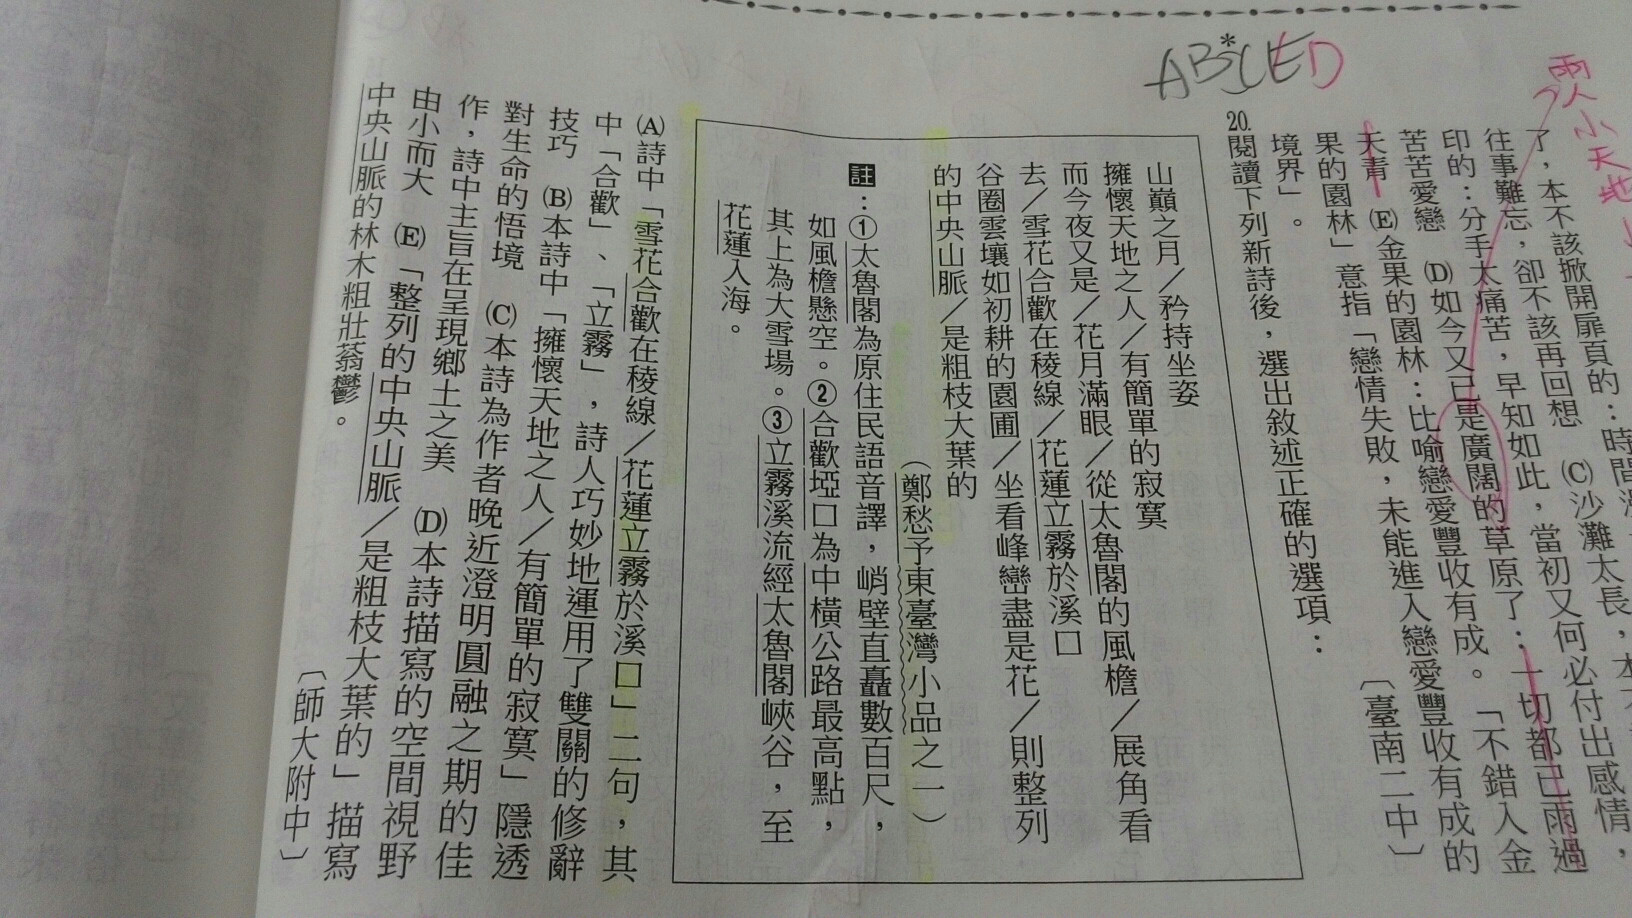 雨小天地
了，本不該掀開扉頁的：時間
往事難忘，卻不該再回想　(C)沙灘太長，本不
印的：分手太痛苦，早知如此，當初又何必付出感情，
苦苦愛戀　(D)如今又已是廣闊的草原了：一切都已雨過
天青　(E)金果的園林：比喻戀愛豐收有成。「不錯入金
果的園林」意指「戀情失敗，未能進入戀愛豐收有成的
境界」。　〔臺南二中〕
AB*CED
20.閱讀下列新詩後，選出敘述正確的選項：
山巔之月／矜持坐姿
擁懷天地之人／有簡單的寂寞
而今夜又是／花月滿眼／從太魯閣的風檐／展角看
去／雪花合歡在稜線／花蓮立霧於溪口
谷圈雲壤如初耕的園圃／坐看峰巒盡是花／則整列
的中央山脈／是粗枝大葉的
（鄭愁予東臺灣小品之一）
註：①太魯閣為原住民語音譯，峭壁直矗數百尺，
如風檐懸空。②合歡埡口為中橫公路最高點，
其上為大雪場。③立霧溪流經太魯閣峽谷，至
花蓮入海。
(A)詩中「雪花合歡在稜線／花蓮立霧於溪口」二句，其
中「合歡」、「立霧」，詩人巧妙地運用了雙關的修辭
技巧　(B)本詩中「擁懷天地之人／有簡單的寂寞」隱透
對生命的悟境　(C)本詩為作者晚近澄明圓融之期的佳
作，詩中主旨在呈現鄉土之美　(D)本詩描寫的空間視野
由小而大　(E)「整列的中央山脈／是粗枝大葉的」描寫
中央山脈的林木粗壯蓊鬱。　〔師大附中〕